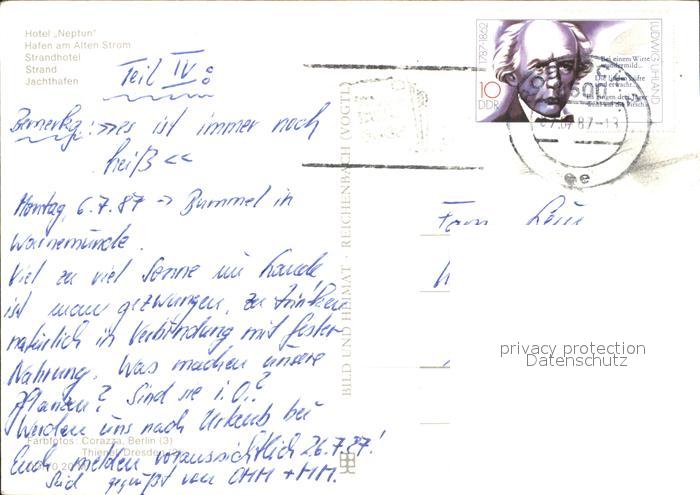 Hotel „Neptun"
Hafen am Alten Strom
Strandhotel
Strand
Jachthafen
Teil IV:
Bemerkg: »es ist immer noch
heiß«
Montag, 6.7.87 → Bummel in
Warnemünde.
Viel zu viel Sonne im Lande,
ist man gezwungen, zu trinken
natürlich in Verbindung mit fester
Nahrung. Was machen unsere
Pflanzen? Sind sie i.O.?
Werden uns nach Urlaub bei
Euch melden voraussichtlich 26.7.87!
Seid gegrüßt von
Farbfotos: Corazza, Berlin (3)
Thienel, Dresden
BILD UND HEIMAT · REICHENBACH (VOGTL)
1787-1862
LUDWIG UHLAND
Bei einem Wirte
wundermild...
Die linden Lüfte
sind erwacht...
10
DDR
Fam
privacy protection
Datenschutz